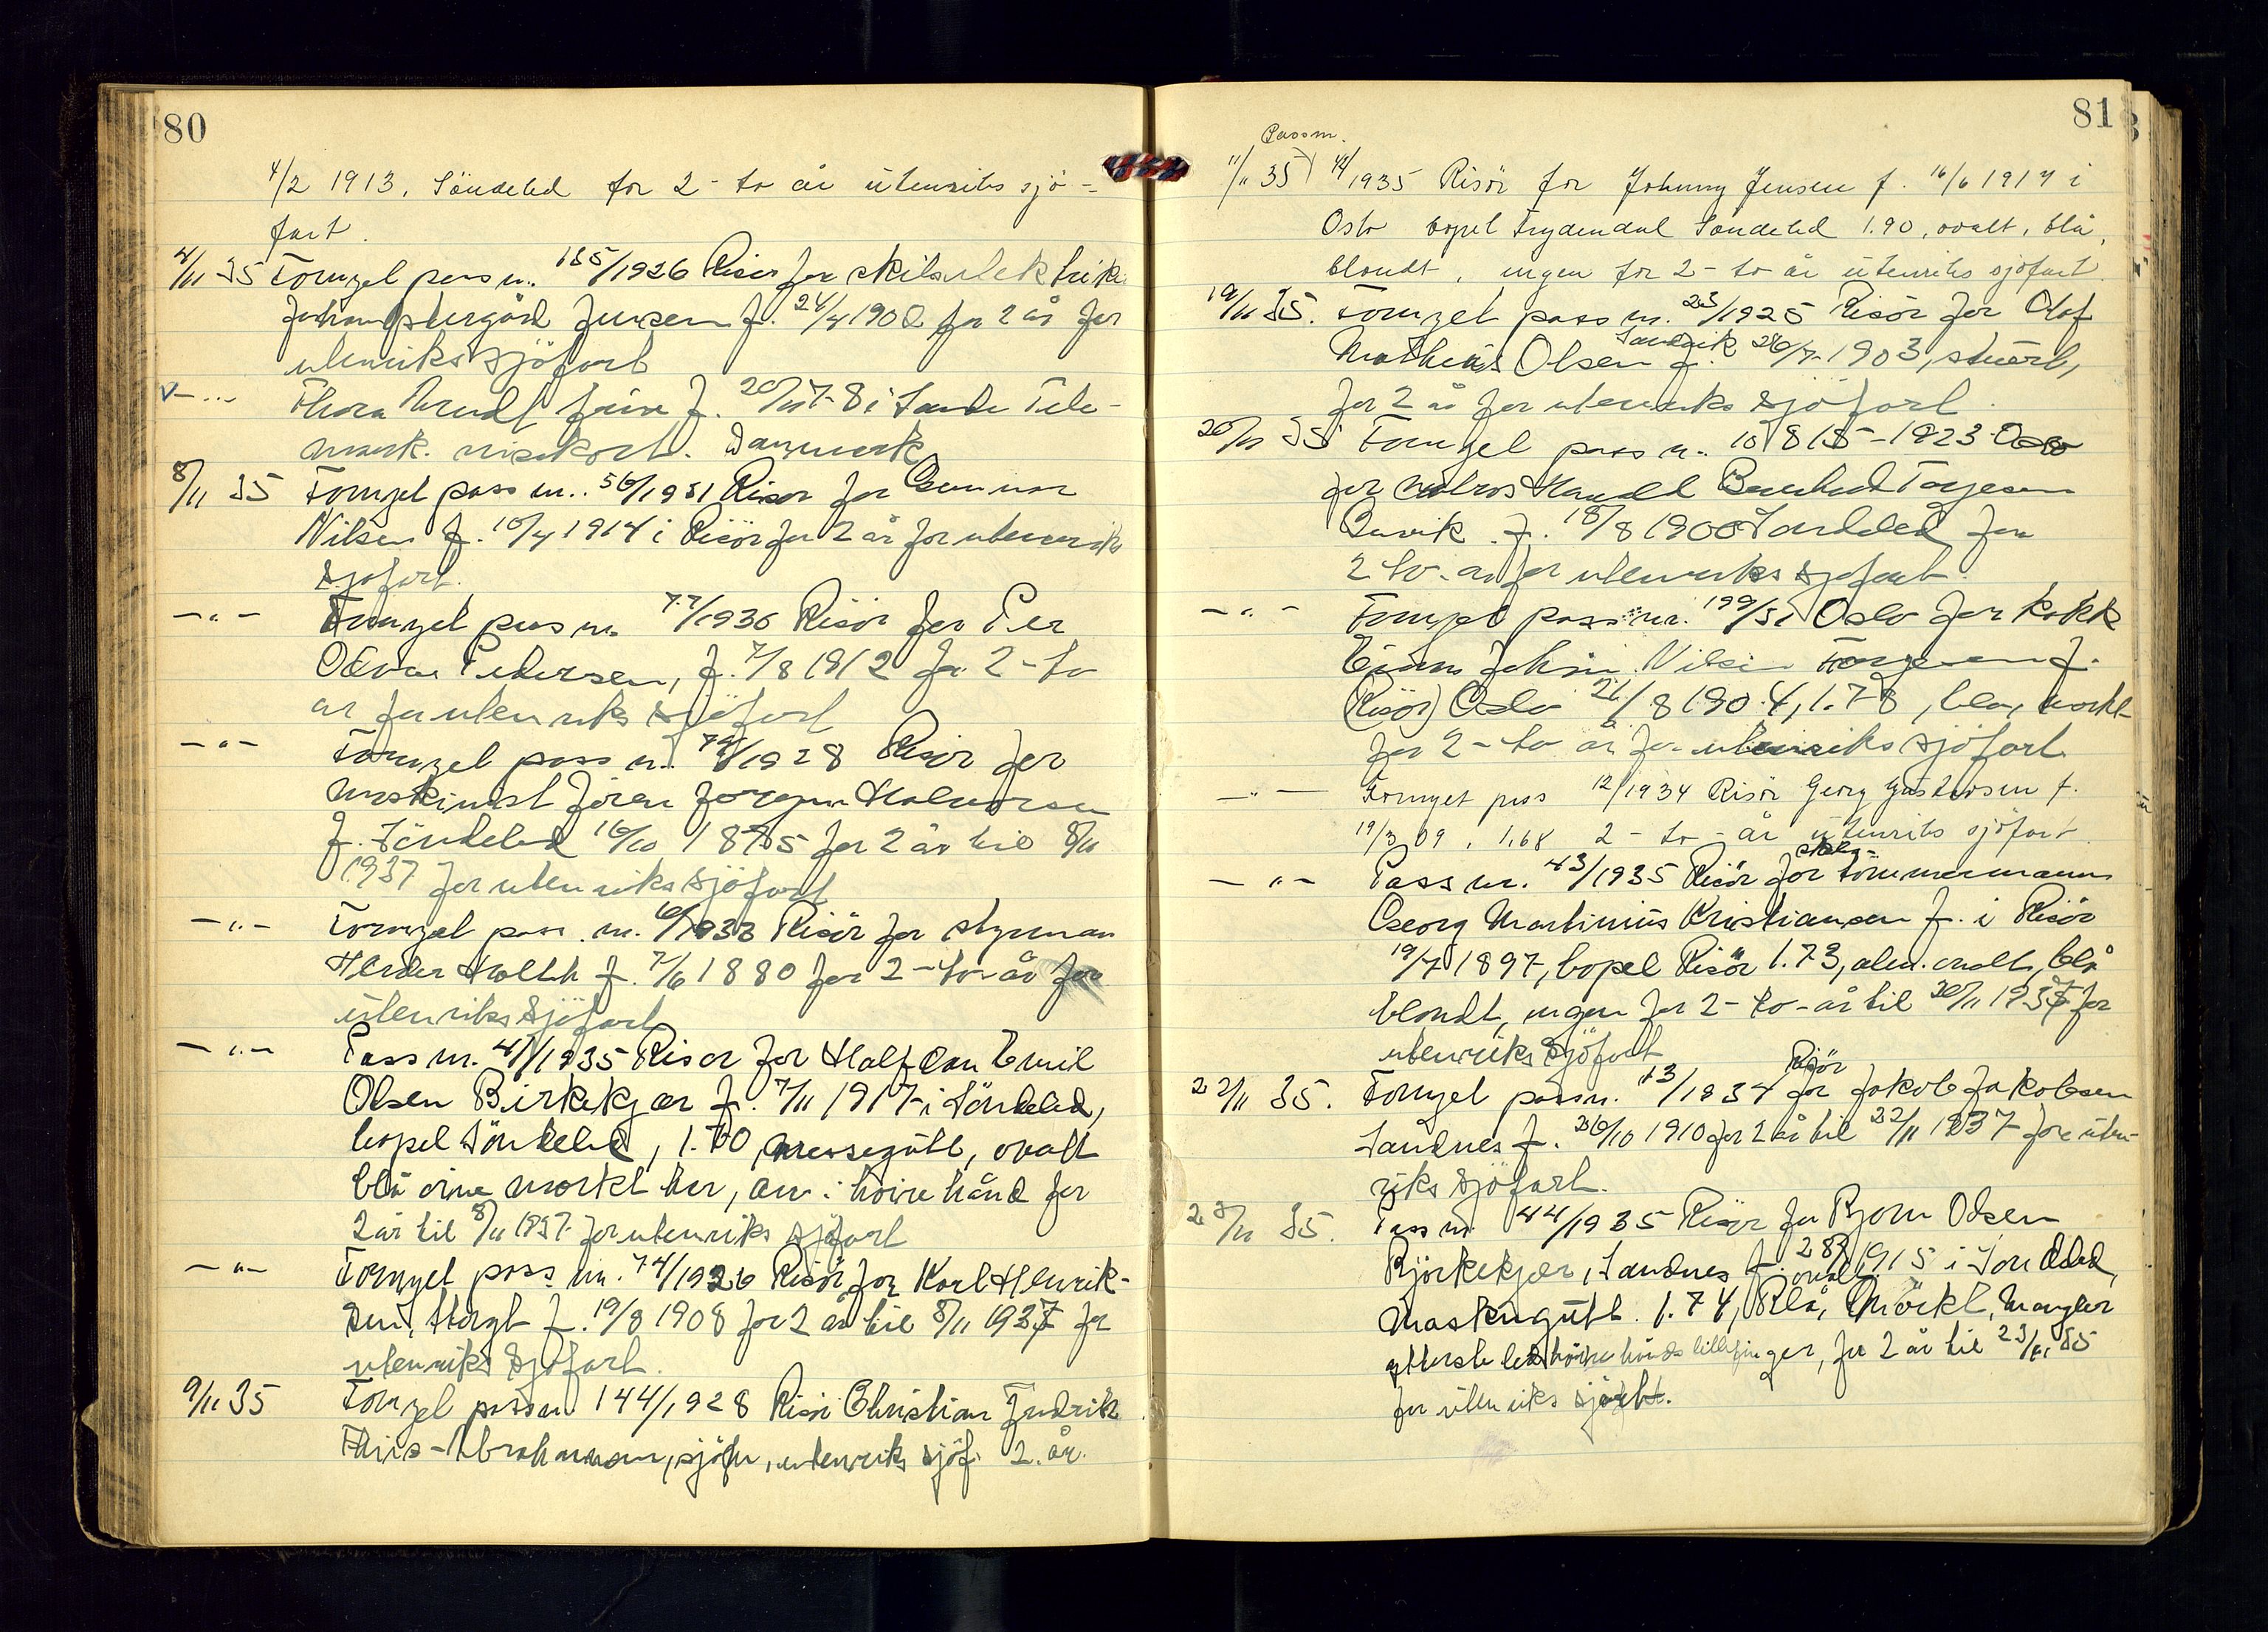 80
4/2 1913, Söndeled for 2-to år utenriks sjö-
fart.
4/11 35 Fornyet pass nr. 155/1926 Risör for skibselektrik.
Johan Jensen f. 24/4 1902 for 2 år for
utenriks sjöfart
-"- Thora Arndt f. 20/11 78 i Sande Tele-
mark. visekort. Danmark
8/11 35 Fornyet pass nr. 56/1931 Risör for Gunnar
Nilsen f. 10/4 1914 i Risör for 2 år for utenriks
sjöfart.
-"- Fornyet pass nr. 77/1930 Risör for Per
Pedersen, f. 7/8 1912 for 2-to
år for utenriks sjöfart
-"- Fornyet pass nr. 74/1928 Risör for
maskinist Jören Jörgen Halvorsen
f. Söndeled 16/10 1875 for 2 år til 8/11
1937 for utenriks sjöfart
-"- Fornyet pass nr. 6/1933 Risör for styrman
Peder Holth f. 7/6 1880 for 2-to-år for
utenriks sjöfart
-"- Pass nr. 41/1935 Risör for Halfdan Emil
Olsen Birkekjær f. 7/11 1917 i Söndeled,
bopel Söndeled, 1.70, messegutt, ovalt
blå öine mörkt hår, arr i höire hånd for
2 år til 8/11 1937 for utenriks sjöfart
-"- Fornyet pass nr. 74/1926 Risör for Karl Henrik-
sen, f. 19/8 1908 for 2 år til 8/11 1937 for
utenriks sjöfart.
9/11 35 Fornyet pass nr 144/1928 Risör Christian Fredrik
Thiis-Abrahamsen, sjöfar, utenriks sjöf. 2. år.
81
Passnr.
11/11 35 42/1935 Risör for Johnny Jensen f. 16/6 1917 i
Oslo bopel Frydendal Söndeled 1.90, ovalt, blå,
blondt, ingen for 2-to år utenriks sjöfart.
19/11 35. Fornyet pass nr. 23/1925 Risör for Olaf
Sandvik
Mathias Olsen f. 26/7 1903, stuert,
for 2 år for utenriks sjöfart.
20/11 35 Fornyet pass nr. 10815-1923 Oslo
for matros Harald Bernhard Torjesen
f. 18/8 1900 Söndeled for
2 to-år for utenriks sjöfart.
-"- Fornyet pass nr. 199/31 Oslo for kokk
Einar Johan Nilsen f.
(Risör) Oslo 21/8 1904, 1.78, blå, mörkt
for 2-to år for utenriks sjöfart
-"- Fornyet pass 12/1934 Risör Georg Gustavsen f.
19/3 09, 1.68 2-to-år utenriks sjöfart
skibs-
-"- Pass nr. 43/1935 Risör for tömmermann
Georg Martinius Kristiansen f. i Risör
19/7 1897, bopel Risör 1.73, alm. ovalt, blå
blondt, ingen for 2-to-år til 20/11 1937 for
utenriks sjöfart
Risör
22/11 35. Fornyet pass nr. 13/1934 for Jakob Jakobsen
Sandnes f. 26/10 1910 for 2 år til 22/11 1937 for uten-
riks sjöfart.
23/11 35. Pass nr 44/1935 Risör for Bjorn Olsen
Björkekjær, Sandnes f. 28/ 1915 i Söndeled,
ovalt
Maskingutt. 1.74, Blå, Mörkt, Mangler
ytterste ledd höire hånds lillefinger, for 2 år til 23/11 35
for utenriks sjöfart.